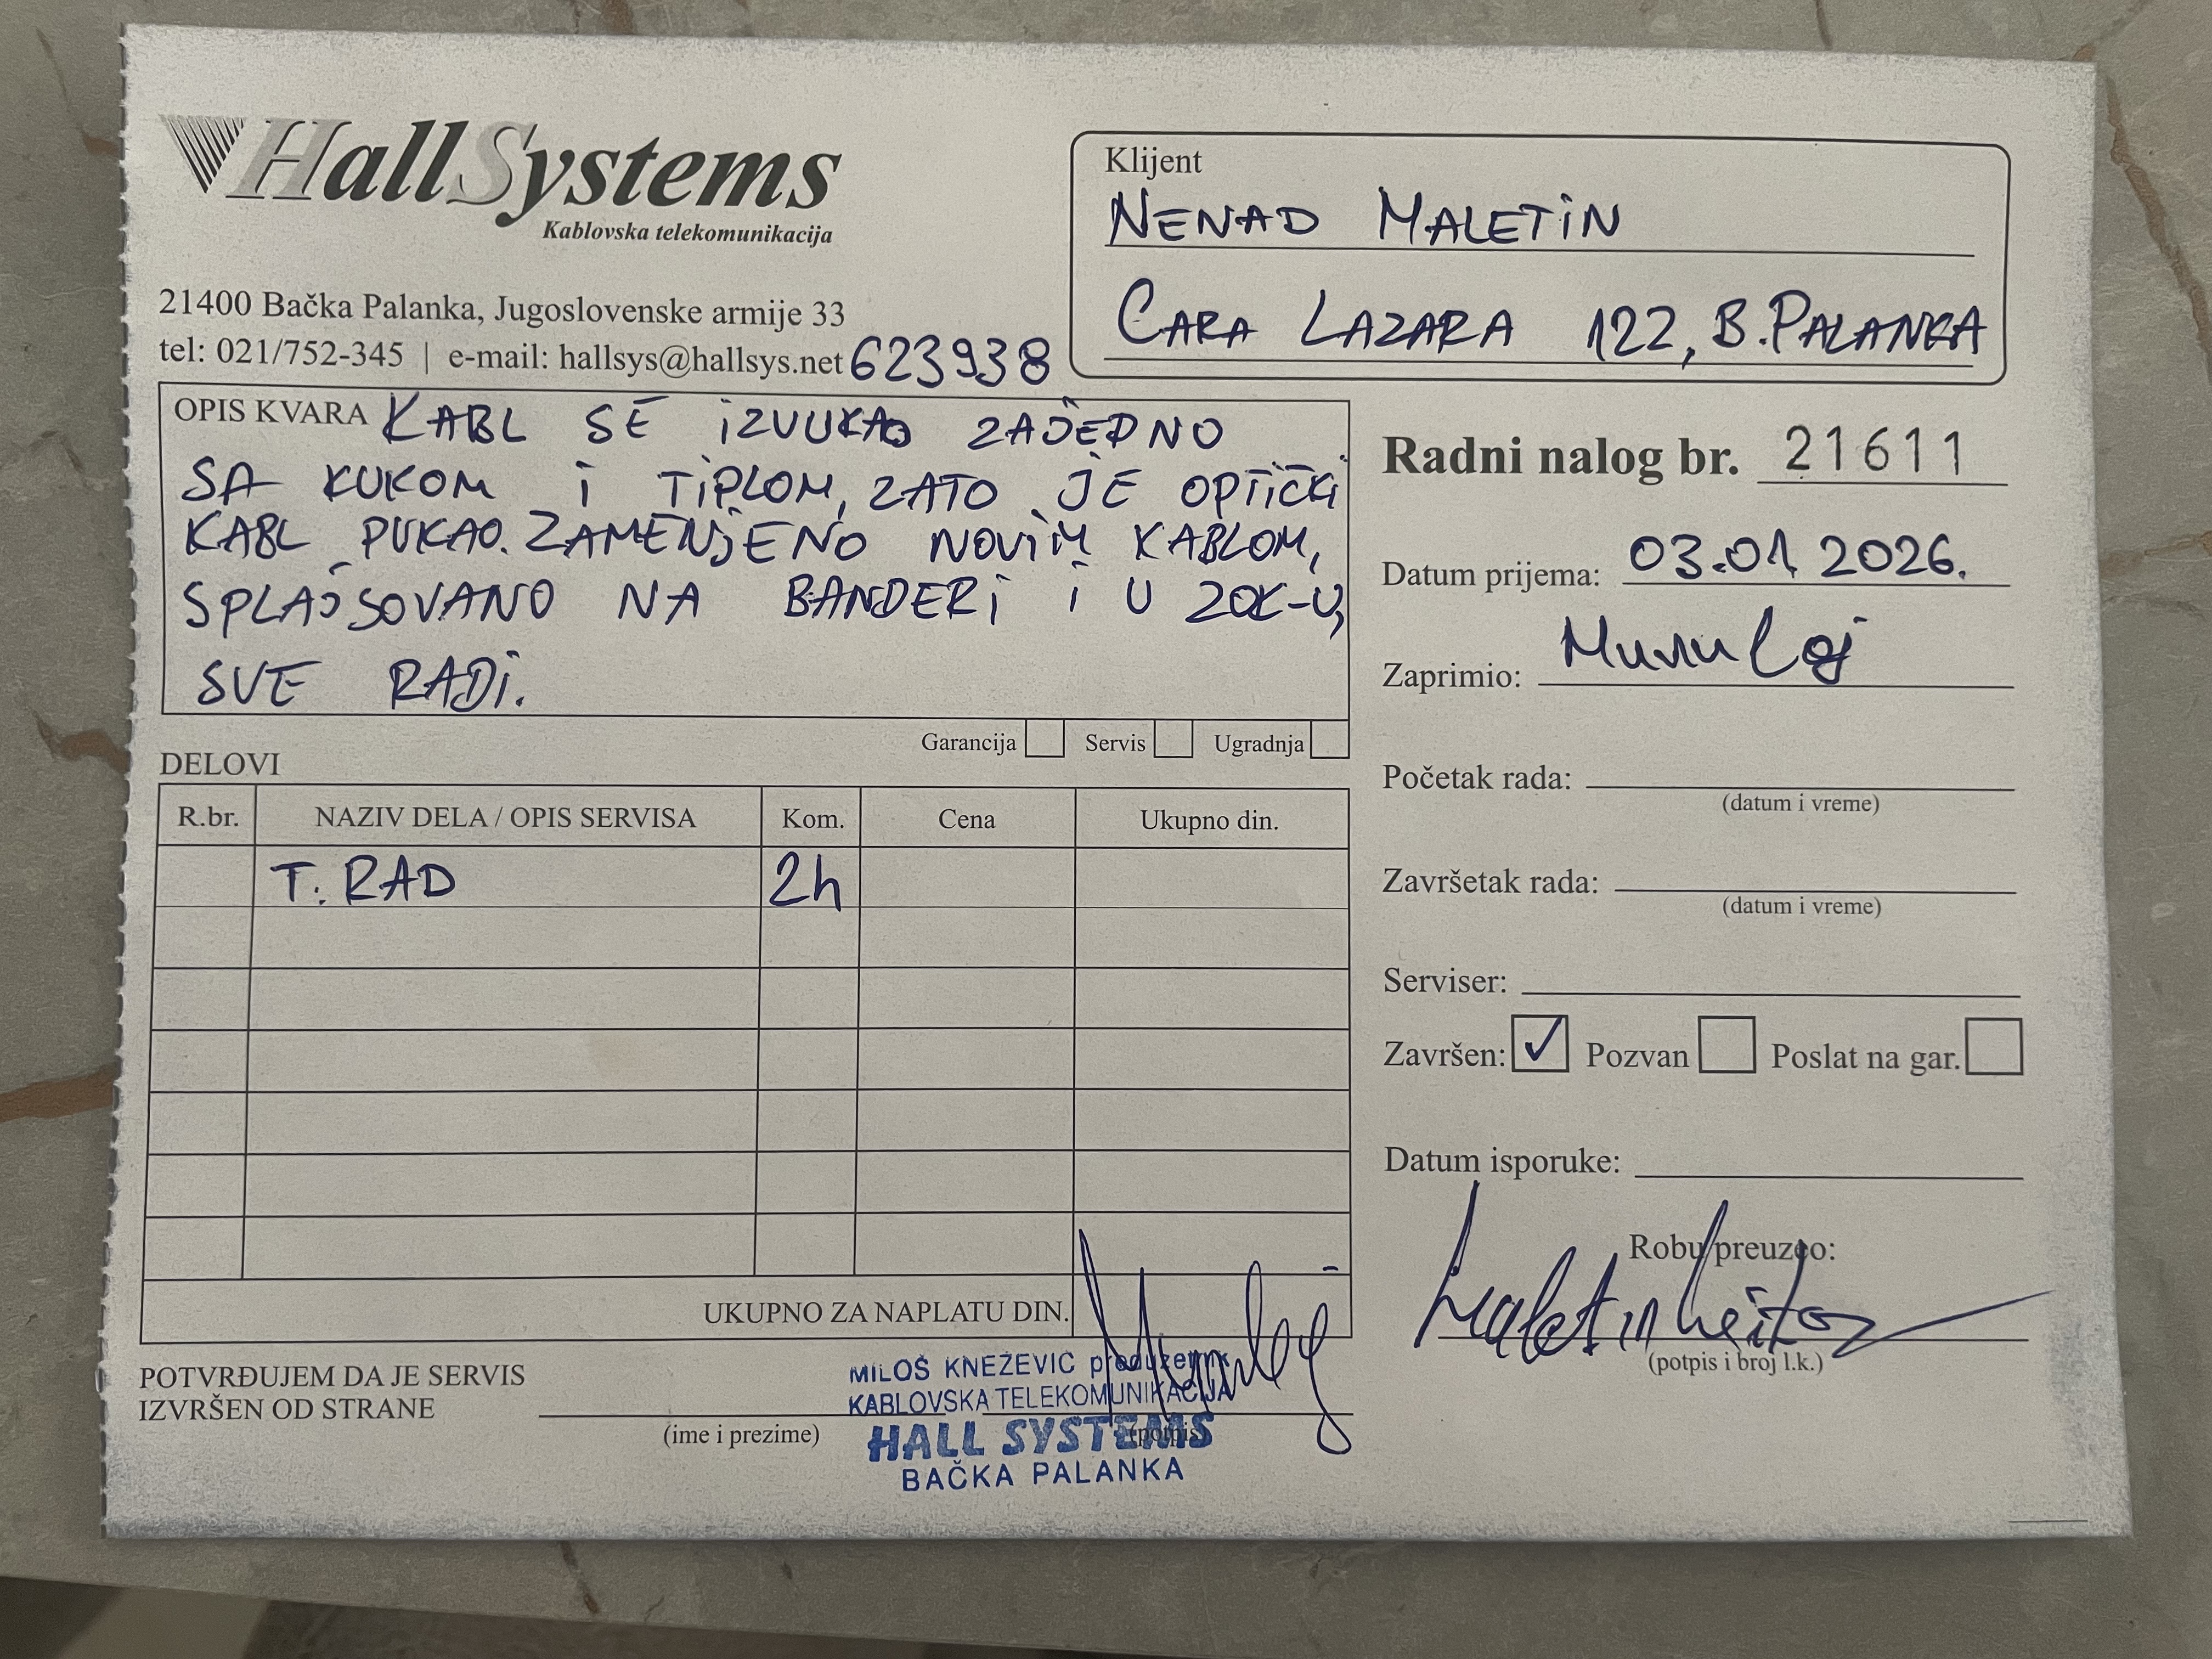 HallSystems
Kablovska telekomunikacija
21400 Bačka Palanka, Jugoslovenske armije 33
tel: 021/752-345 | e-mail: hallsys@hallsys.net 623938
Klijent
NENAD MALETIN
CARA LAZARA 122, B. PALANKA
OPIS KVARA KABL SE IZVUKAO ZAJEDNO
SA KUKOM I TIPLOM, ZATO JE OPTIČKI
KABL PUKAO. ZAMENJENO NOVIM KABLOM,
SPLAJSOVANO NA BANDERI I U ZOK-U,
SVE RADI.
Garancija Servis Ugradnja
Radni nalog br. 21611
Datum prijema: 03.01.2026.
Zaprimio:
Početak rada:
(datum i vreme)
Završetak rada:
(datum i vreme)
Serviser:
Završen: ✓ Pozvan Poslat na gar.
Datum isporuke:
Robu preuzeo:
(potpis i broj l.k.)
DELOVI
R.br. NAZIV DELA / OPIS SERVISA Kom. Cena Ukupno din.
T. RAD 2h
UKUPNO ZA NAPLATU DIN.
POTVRĐUJEM DA JE SERVIS
IZVRŠEN OD STRANE
(ime i prezime)
(potpis)
MILOŠ KNEŽEVIĆ preduzetnik
KABLOVSKA TELEKOMUNIKACIJA
HALL SYSTEMS
BAČKA PALANKA